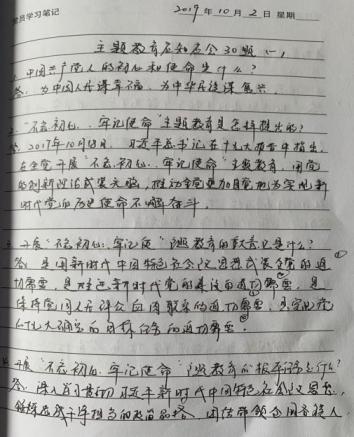 党员学习笔记 2019年10月2日 星期
主题教育应知应会30题 (一)
1.中国共产党人的初心和使命是什么?
答:为中国人民谋幸福,为中华民族谋复兴。
2."不忘初心、牢记使命"主题教育是怎样提出的?
答:2017年10月18日,习近平总书记在十九大报告中指出,
在全党开展"不忘初心、牢记使命"主题教育,用党
的创新理论武装头脑,推动全党更加自觉地为实现新
时代党的历史使命不懈奋斗。
3.开展"不忘初心、牢记使命"主题教育的重大意义是什么?
答:是用新时代中国特色社会主义思想武装全党的迫①
切需要,是推进新时代党的建设的迫切需要②,是
保持党同人民群众血肉联系的迫切需要③,是实现党
的十九大确定的目标任务的迫切需要④
4.开展"不忘初心、牢记使命"主题教育的根本任务是什么?
答:深入学习贯彻习近平新时代中国特色社会主义思想,
锤炼忠诚干净担当的政治品格,团结带领全国各族人